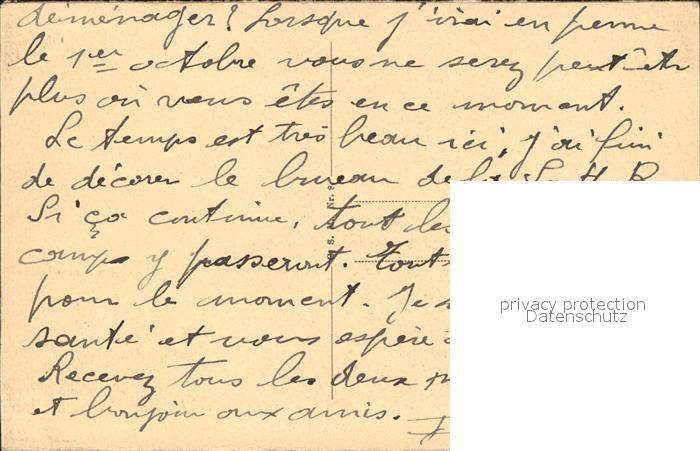 déménager? Lorsque j'irai en perme
le 1er octobre vous ne serez peut-être
plus où vous êtes en ce moment.
Le temps est très beau ici, j'ai fini
de décorer le bureau de la S. H. R.
Si ça continue, tout les
camps y passeront. Tout
pour le moment. Je s
santé et vous espère
Recevez tous les deux
et bonjour aux amis.
privacy protection
Datenschutz